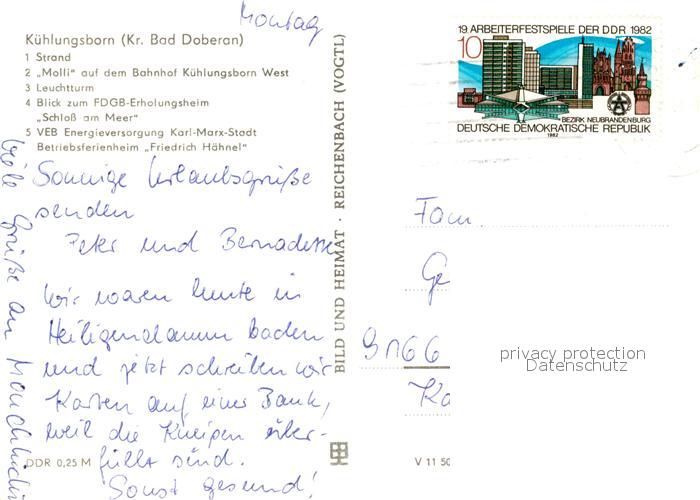 Montag
Kühlungsborn (Kr. Bad Doberan)
1 Strand
2 „Molli" auf dem Bahnhof Kühlungsborn West
3 Leuchtturm
4 Blick zum FDGB-Erholungsheim
„Schloß am Meer"
5 VEB Energieversorgung Karl-Marx-Stadt
Betriebsferienheim „Friedrich Hähnel"
Sonnige Urlaubsgrüße
senden
Peter und Bernadette
Wir waren heute in
Heiligendamm baden
und jetzt schreiben wir
Karten auf einer Bank,
weil die Kneipen über-
füllt sind.
Sonst gesund!
Viele Grüße an
DDR 0,25 M
BILD UND HEIMAT · REICHENBACH (VOGTL)
V 11 50
19. ARBEITERFESTSPIELE DER DDR 1982
10
BEZIRK NEUBRANDENBURG
DEUTSCHE DEMOKRATISCHE REPUBLIK
1982
Fam.
Ge
9166
Ka
privacy protection
Datenschutz